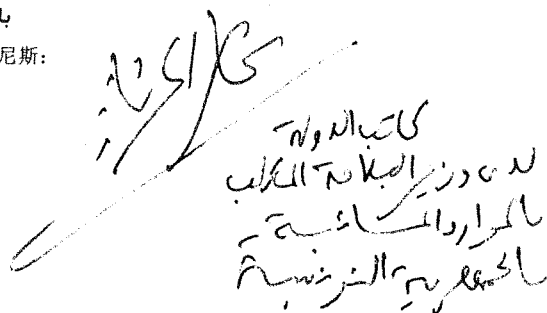 尼斯:
كاتب الدولة
لدى وزير الفلاحة المكلف
بالموارد المائية
بالجمهورية التونسية